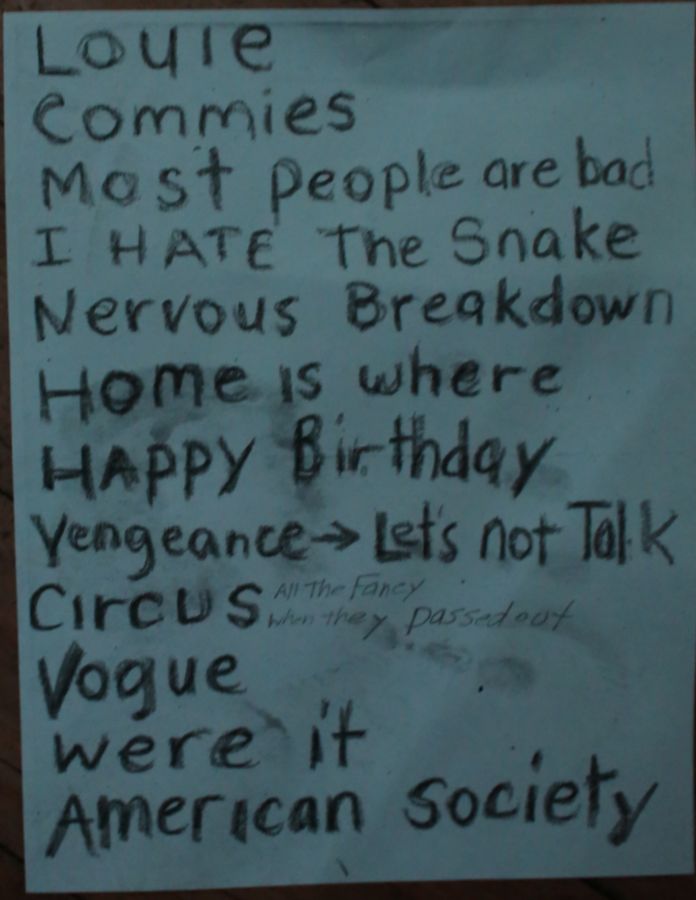 Louie
Commies
Most people are bad
I HATE The Snake
Nervous Breakdown
Home is where
HAPPY Birthday
Vengeance→ Let's not Talk
Circus All The Fancy
when they passed out
Vogue
were it
American society